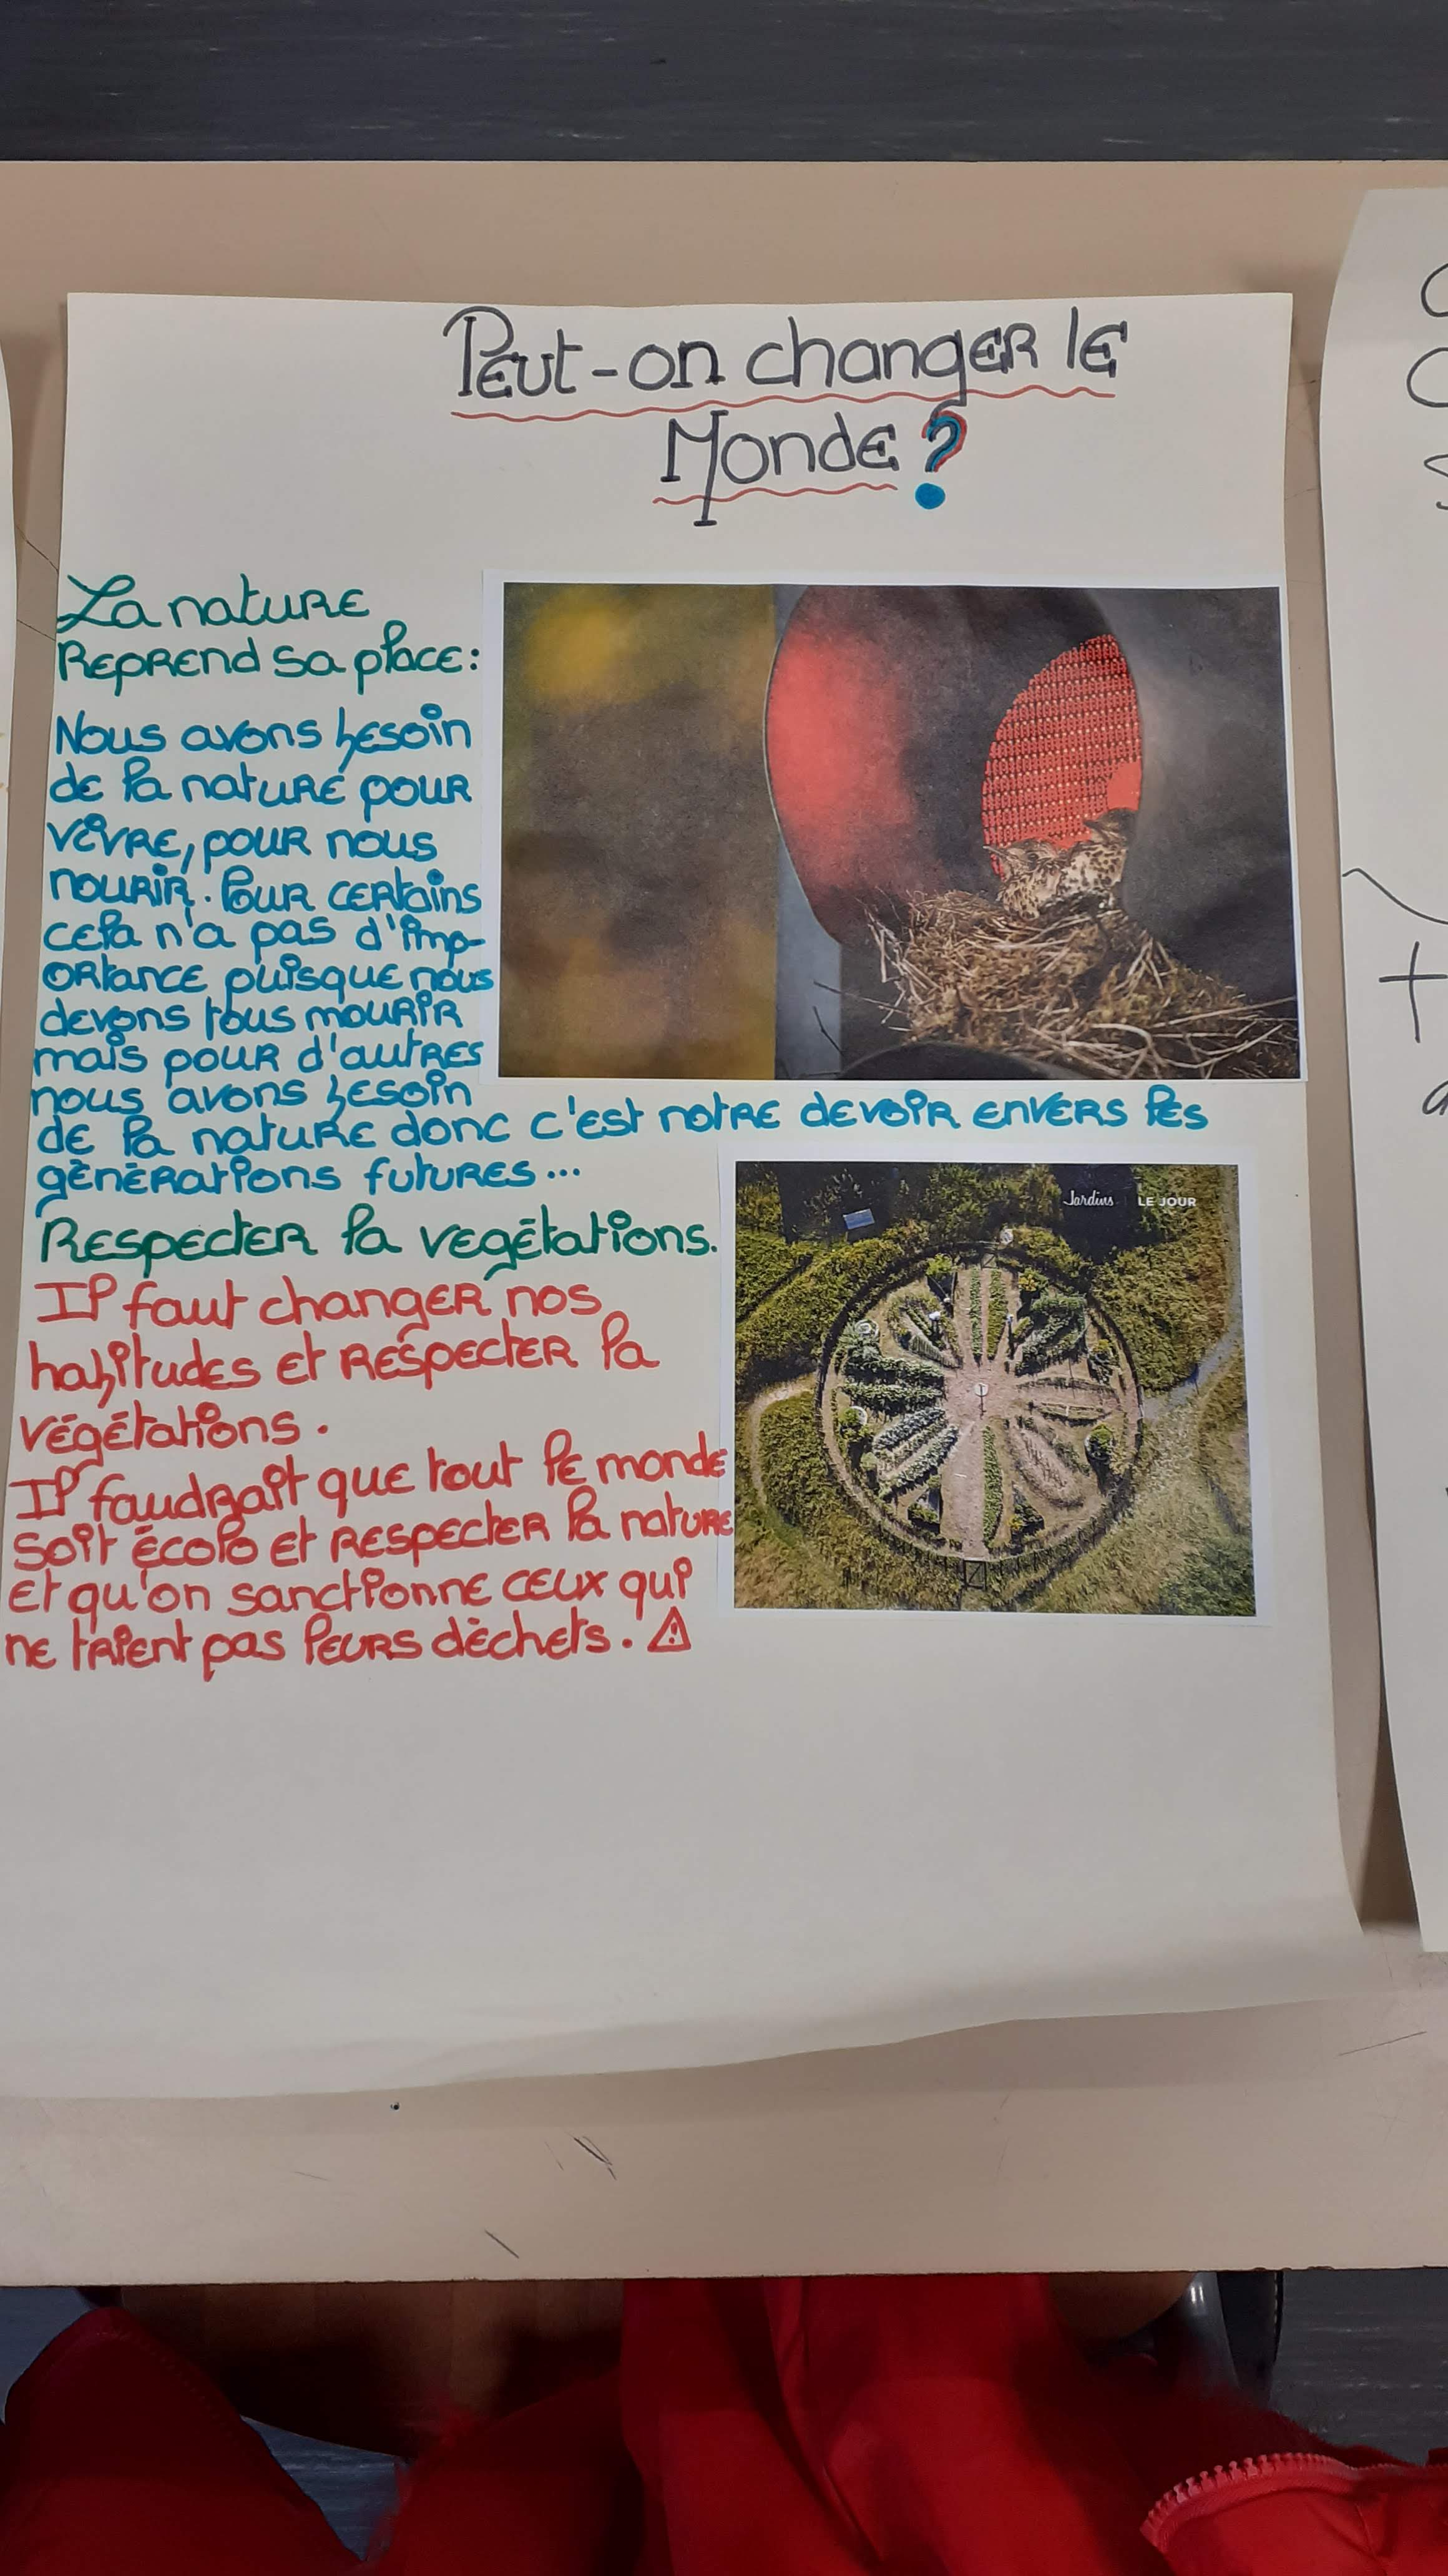 Peut-on changer le
Monde ?
La nature
Reprend sa place :
Nous avons besoin
de la nature pour
vivre, pour nous
nourir. Pour certains
cela n'a pas d'imp-
ortance puisque nous
devons tous mourir
mais pour d'autres
nous avons besoin
de la nature donc c'est notre devoir envers les
générations futures...
Jardins LE JOUR
Respecter la vegétations.
Il faut changer nos
habitudes et respecter la
végétations.
Il faudrait que tout le monde
soit écolo et respecter la nature
et qu'on sanctionne ceux qui
ne trient pas leurs déchets. ⚠